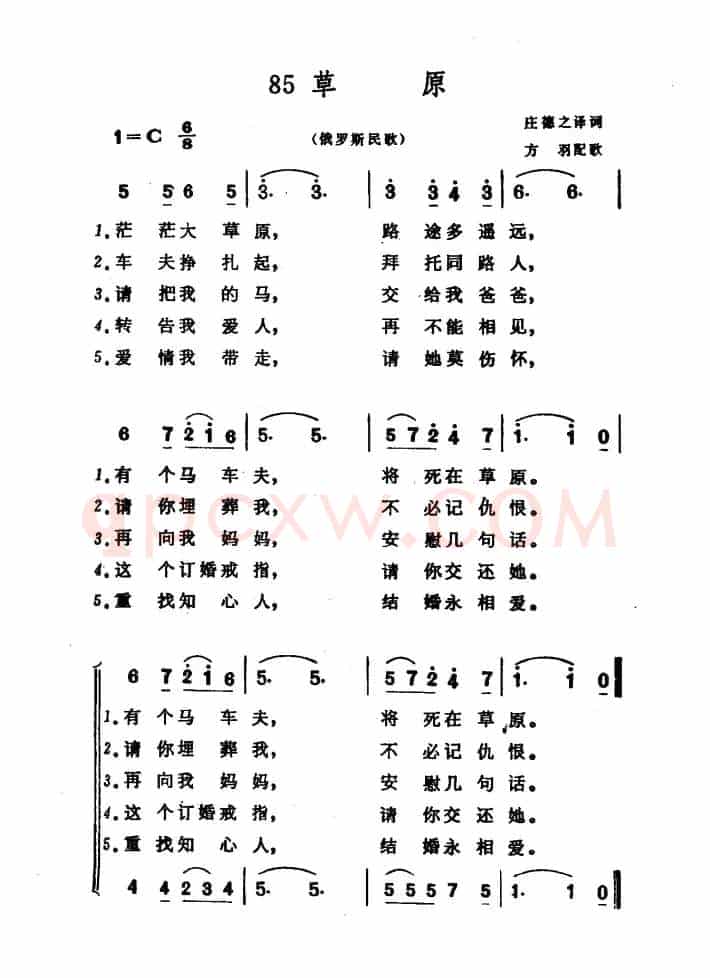 85 草 原
1=C 6/8
（俄罗斯民歌）
庄德之译词
方 羽配歌
5 5 6 5 | 3̇· 3̇· | 3̇ 3̇ 4̇ 3̇ | 6· 6· |
1.茫 茫大 草 原， 路 途多 遥 远，
2.车 夫挣 扎 起， 拜 托同 路 人，
3.请 把我 的 马， 交 给我 爸 爸，
4.转 告我 爱 人， 再 不能 相 见，
5.爱 情我 带 走， 请 她莫 伤 怀，
6 7 2̇ 1̇ 6 | 5· 5· | 5 7 2̇ 4̇ 7 | 1̇· 1̇ 0 |
1.有 个马 车 夫， 将 死在 草 原。
2.请 你埋 葬 我， 不 必记 仇 恨。
3.再 向我 妈 妈， 安 慰几 句 话。
4.这 个订婚戒 指， 请 你交 还 她。
5.重 找知 心 人， 结 婚永 相 爱。
qpcxw.COM
6 7 2̇ 1̇ 6 | 5· 5· | 5 7 2̇ 4̇ 7 | 1̇· 1̇ 0
1.有 个马 车 夫， 将 死在 草 原。
2.请 你埋 葬 我， 不 必记 仇 恨。
3.再 向我 妈 妈， 安 慰几 句 话。
4.这 个订婚戒 指， 请 你交 还 她。
5.重 找知 心 人， 结 婚永 相 爱。
4 4 2 3 4 | 5· 5· | 5 5 5 7 5 | 1· 1 0